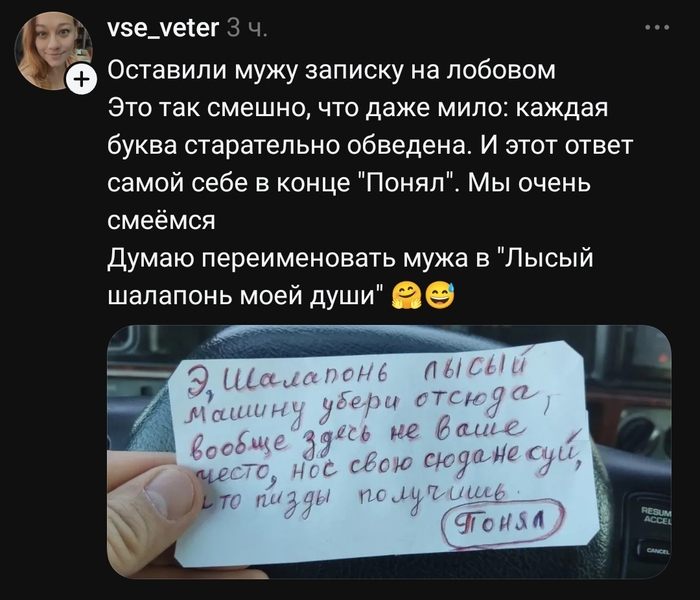 vse_veter 3 ч.
Оставили мужу записку на лобовом
Это так смешно, что даже мило: каждая
буква старательно обведена. И этот ответ
самой себе в конце "Понял". Мы очень
смеёмся
Думаю переименовать мужа в "Лысый
шалапонь моей души" 🤗😅
Э, Шалапонь лысый
машину убери отсюда,
вообще здесь не ваше
место, нос свою сюда не суй,
то пизды получишь.
Понял
RESUM
ACCEL
CANCEL